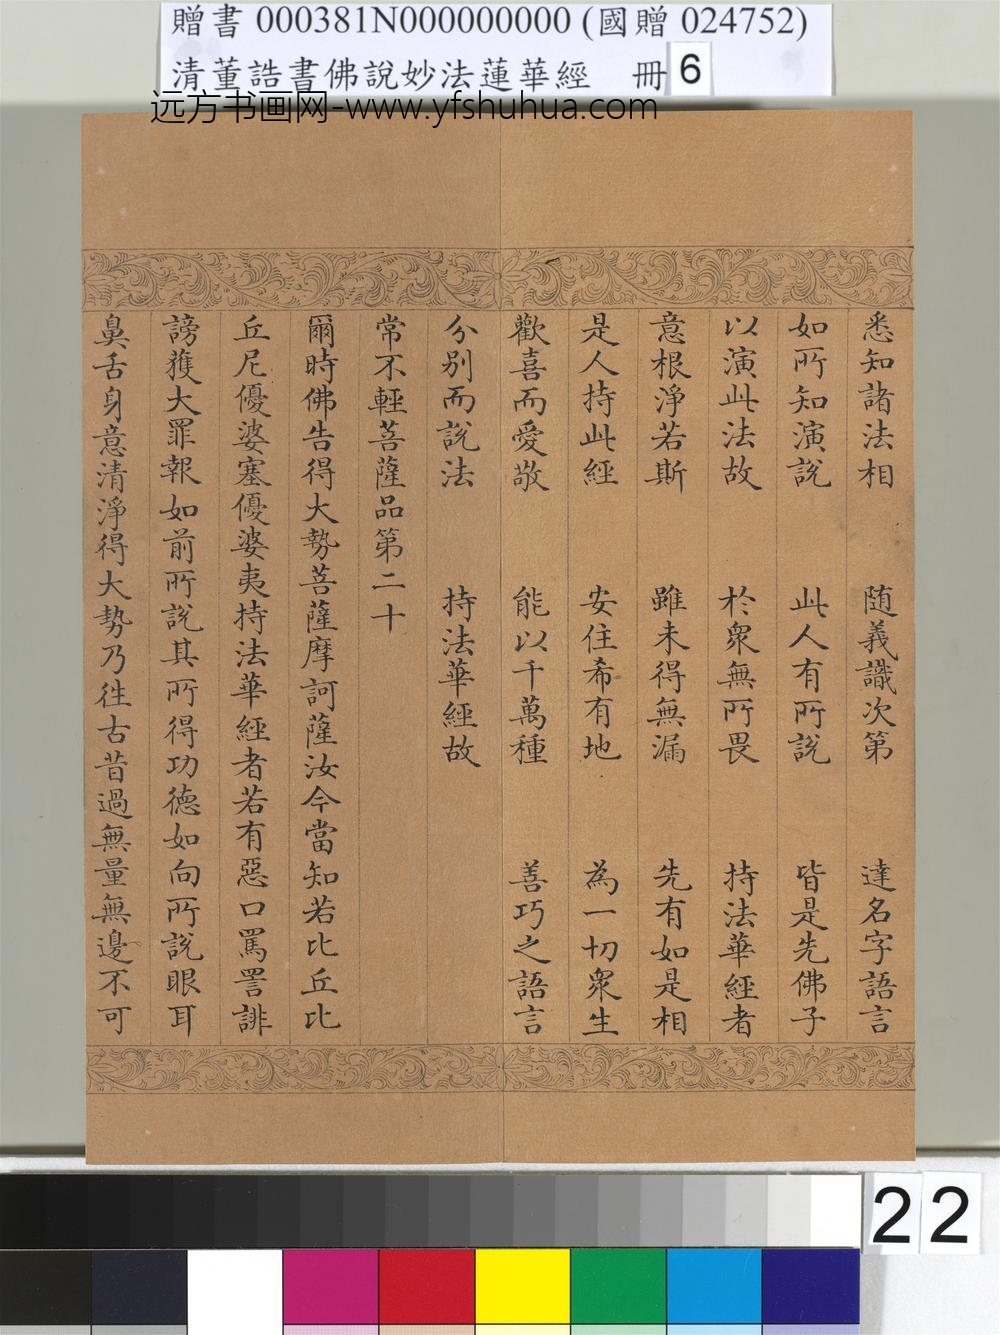 贈書 000381N000000000 (國贈 024752)
清董誥書佛說妙法蓮華經 冊 6
远方书画网-www.yfshuhua.com
悉知諸法相 随義識次第 達名字語言
如所知演說 此人有所說 皆是先佛子
以演此法故 於衆無所畏 持法華經者
意根淨若斯 雖未得無漏 先有如是相
是人持此經 安住希有地 為一切衆生
歡喜而愛敬 能以千萬種 善巧之語言
分别而說法 持法華經故
常不輕菩薩品第二十
爾時佛告得大勢菩薩摩訶薩汝今當知若比丘比
丘尼優婆塞優婆夷持法華經者若有惡口罵詈誹
謗獲大罪報如前所說其所得功德如向所說眼耳
鼻舌身意清淨得大勢乃往古昔過無量無邊不可
22